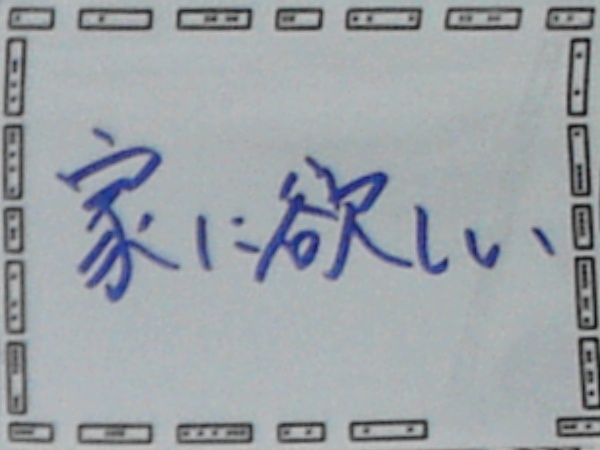 家に欲しい